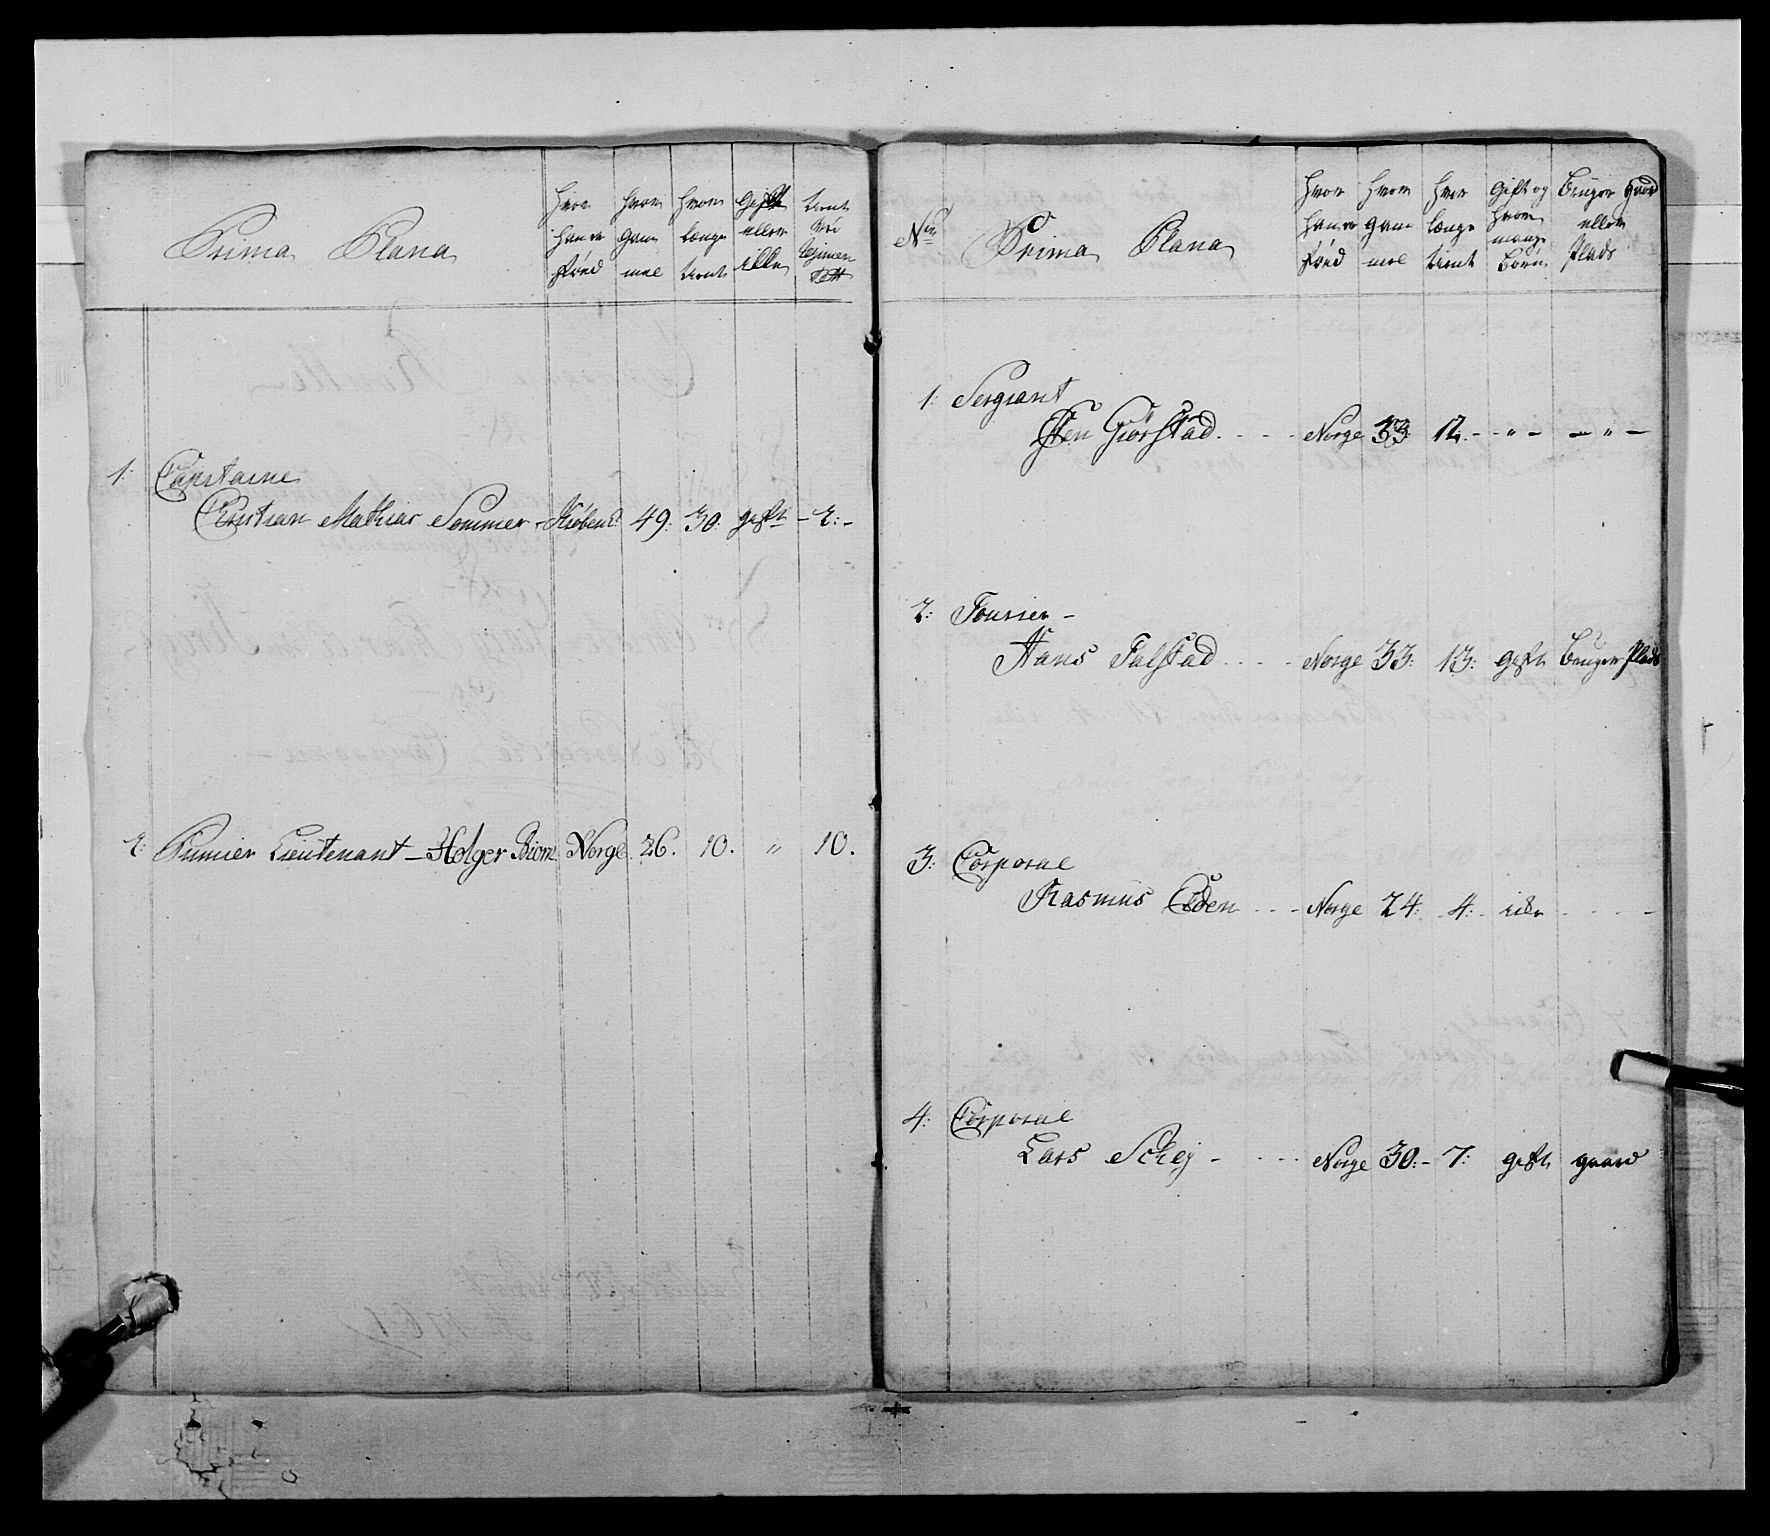 Prima Plana
Hvor
hand er
fød
Hvor
gam
mel
Hvor
længe
tient
Gift
eller
ikke
tient
ved
Regimen
tett
1: Capitaine
Christian Mathias Sommer - Kiøbenh. 49: 30: gift - 2: -
2: Premier Lieutenant - Holger Biørn Norge 26. 10. " 10.
No Prima Plana
Hvor
hand er
fød
Hvor
gam
mel
Hvor
længe
tient
Gift og
hvor
mange
børn
Bruger gaard
eller
plads
1: Sergiant
Sten Giørstad. - - - Norge 33: 12: - - " - - " -
2: Fourier -
Hans Falstad - - - Norge 33: 13: gift Bruger plads
3: Corporal
Rasmus Elden - - - Norge 24: 4: - - - -
4: Corporal
Lars Schej - - - - Norge 30: - 7: gift gaard